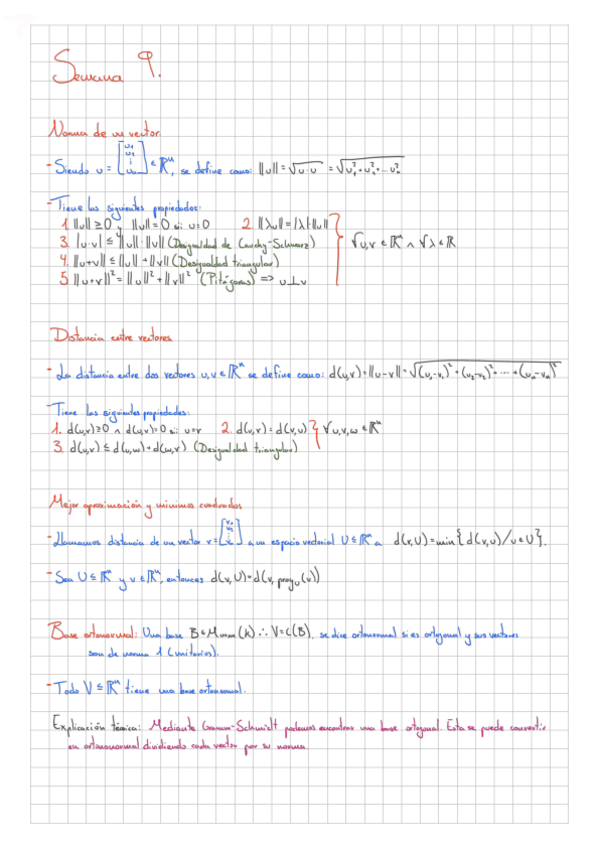 Semana 9.
Norma de un vector
- Siendo u = [u₁ u₂ ⋮ uₙ] ∈ ℝⁿ, se define como: ||u|| = √u·u = √u₁²+u₂²+...uₙ²
- Tiene las siguientes propiedades:
1. ||u|| ≥ 0 y ||u|| = 0 sii u=0 2. ||λu|| = |λ|·||u||
3. |u·v| ≤ ||u||·||v|| (Desigualdad de Cauchy-Schwarz) ∀u,v ∈ ℝⁿ ∧ ∀λ ∈ ℝ
4. ||u+v|| ≤ ||u|| + ||v|| (Desigualdad triangular)
5 ||u+v||² = ||u||² + ||v||² (Pitágoras) => u⊥v
Distancia entre vectores
- La distancia entre dos vectores u,v ∈ ℝⁿ se define como: d(u,v) = ||u-v|| = √(u₁-v₁)²+(u₂-v₂)²+...+(uₙ-vₙ)²
- Tiene las siguientes propiedades:
1. d(u,v) ≥ 0 ∧ d(u,v) = 0 sii u=v 2. d(u,v) = d(v,u) } ∀u,v,w ∈ ℝⁿ
3. d(u,v) ≤ d(u,w) + d(w,v) (Desigualdad triangular)
Mejor aproximación y mínimos cuadrados
- Llamamos distancia de un vector v = [v₁ v₂ ⋮ vₙ] a un espacio vectorial U ⊆ ℝⁿ a d(v,U) = min{d(v,u)/u ∈ U}.
- Sea U ⊆ ℝⁿ y v ∈ ℝⁿ, entonces d(v,U) = d(v, proy_U(v))
Base ortonormal: Una base B ∈ Mₘₓₙ(K) ∴ V = C(B), se dice ortonormal si es ortogonal y sus vectores
son de norma 1 (unitarios).
- Todo V ⊆ ℝⁿ tiene una base ortonormal.
Explicación técnica: Mediante Gramm-Schmidt podemos encontrar una base ortogonal. Esta se puede convertir
en ortonormal dividiendo cada vector por su norma.